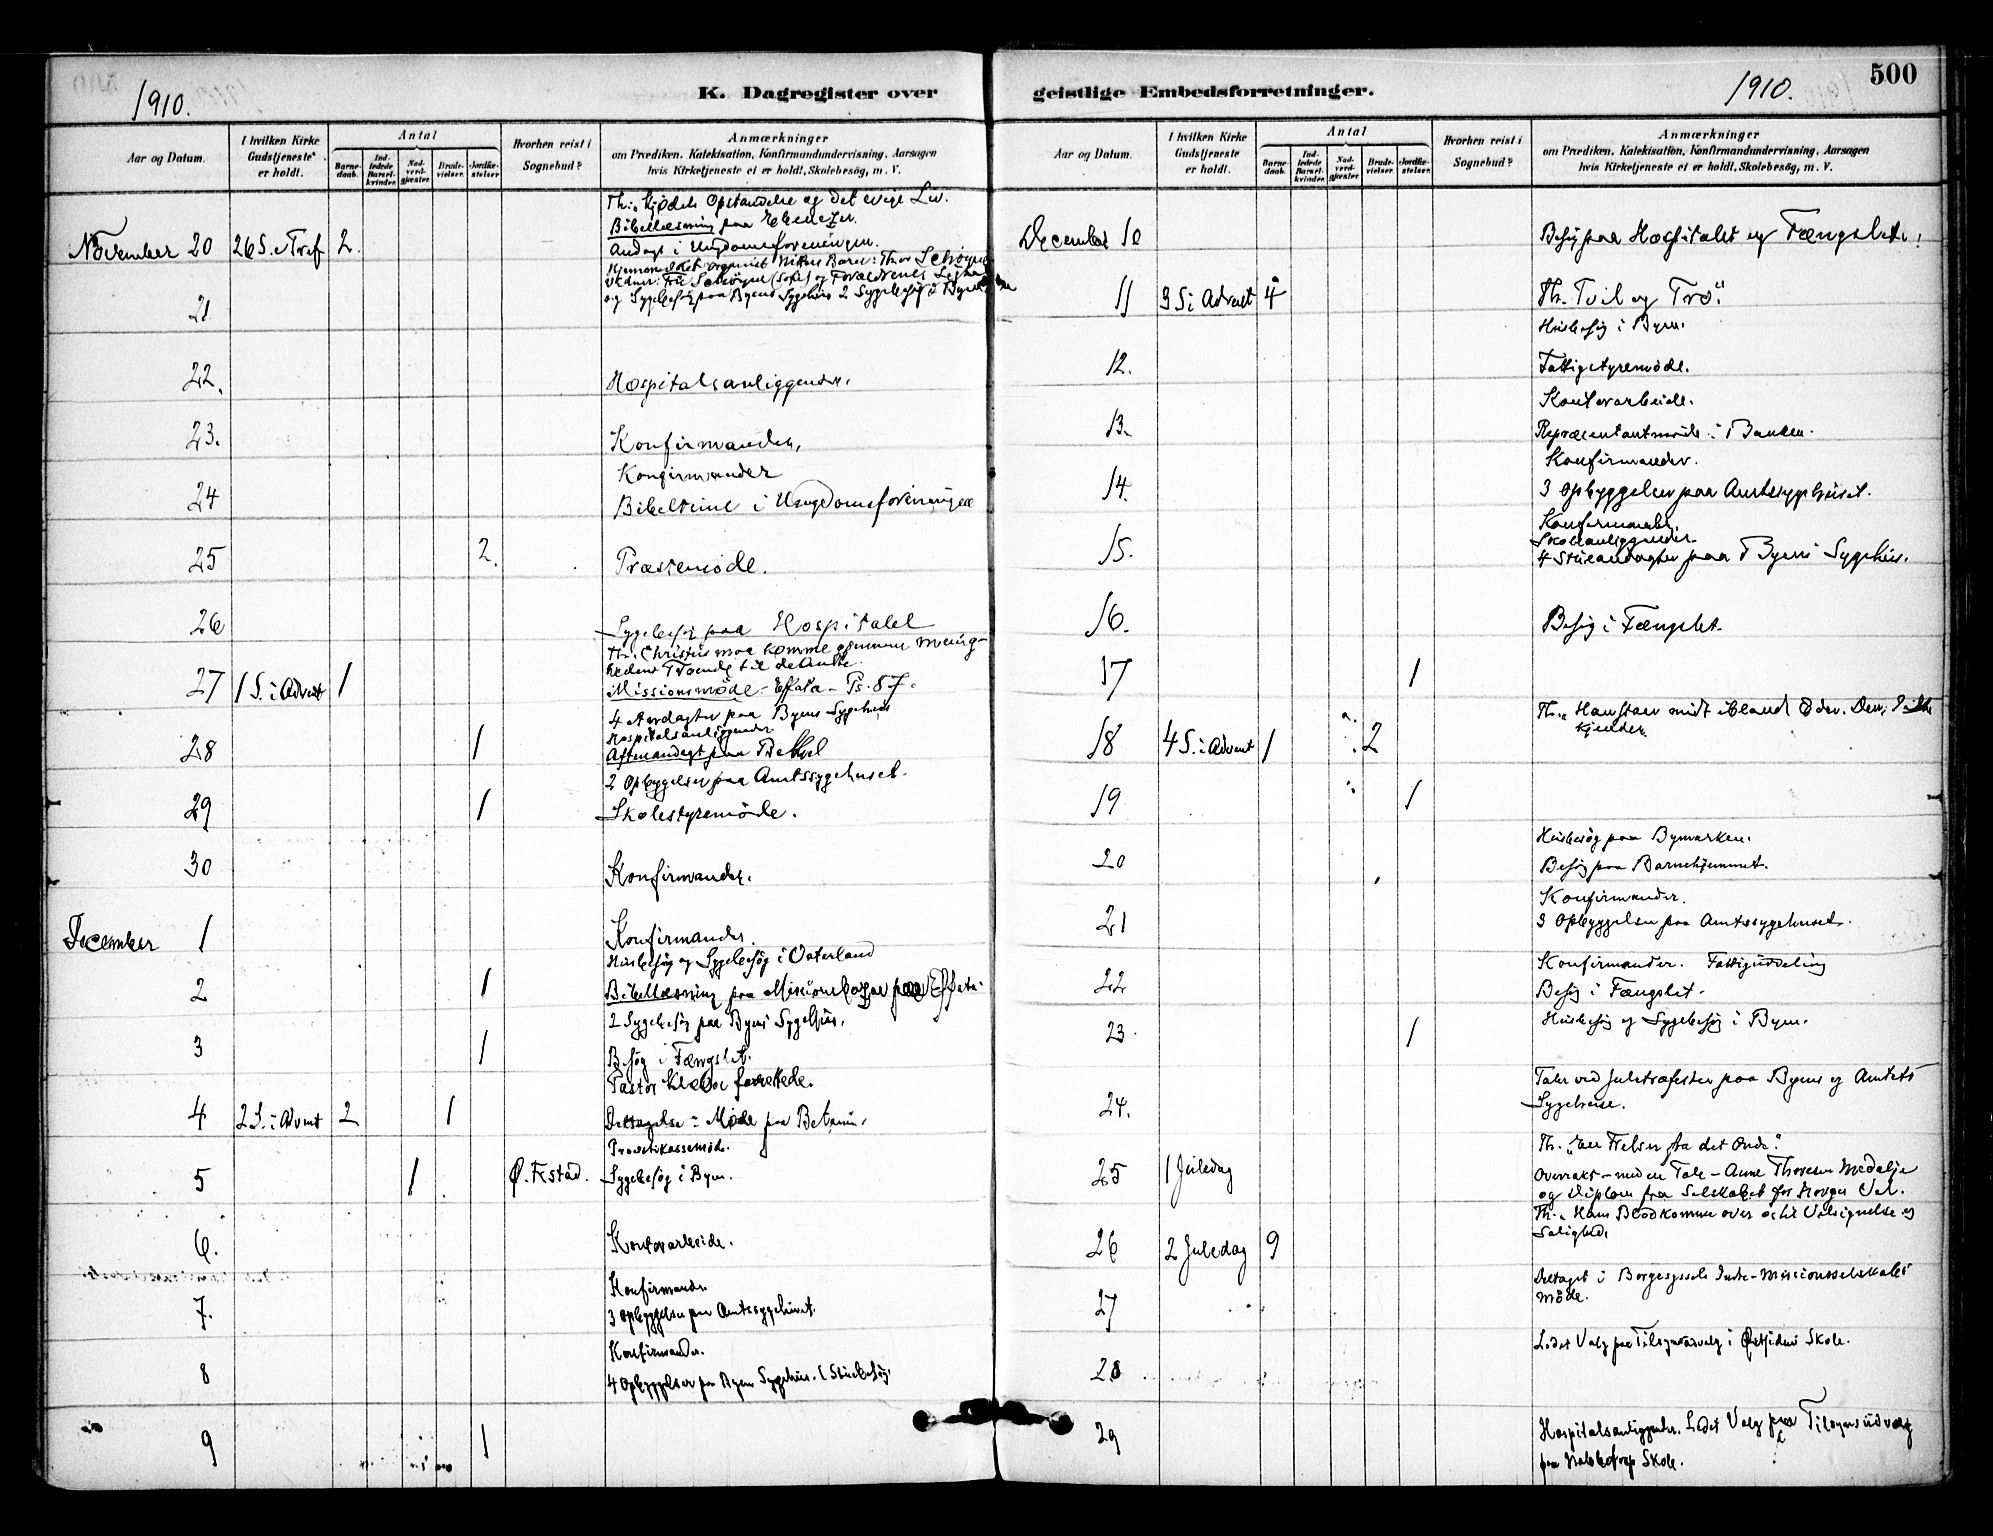 1910.
K. Dagregister over
Aar og Datum.
I hvilken Kirke Gudstjeneste er holdt.
Antal
Barne-daab.
Ind-ledede Barsel-kvinder.
Nad-verd-gjæster.
Brude-vielser.
Jordfæ-stelser.
Hvorhen reist i Sognebud?
Anmærkninger
om Prædiken, Katekisation, Konfirmandundervisning, Aarsagen
hvis Kirketjeneste ei er holdt, Skolebesøg, m. V.
Th: Kjødets Opstandelse og det evige Liv.
Bibellæsning paa Ebenezer.
November 20 26 S. e Tref 2.
Andagt i Ungdomsforeningen.
og Sygebesøg paa Byens Sygehus 2 Sygebesøg i Byen
21
22. Hospitalsanliggender.
23. Konfirmander.
Konfirmander
24 Bibeltime i Ungdomsforeningen
25 2. Præstemøde.
26 Sygebesøg paa Hospitalet
Th. Christus maa komme gjennem Menig-
hedens Troende til de Andre.
27 1 S. i Advent 1 Missionsmøde - Effata - Ps. 87.
4 Andagter paa Byens Sygehus
Hospitalsanliggender.
28 1 Aftenandagt paa Bethel
2 Opbyggelser paa Amtssygehuset.
29 1 Skolestyremøde.
30 Konfirmander.
December 1 Konfirmander.
Husbesøg og Sygebesøg i Vaterland
2 1 Bibellæsning paa Effata.
2 Sygebesøg paa Byens Sygehus.
3 1 Besøg i Fængslet.
Pastor forrettede.
4 2 S. i Advent 2 1 Deltagelse i Møde paa Betania.
5 1 Ø. Fstad. Sygebesøg i Byen.
6. Kontorarbeide.
Konfirmander.
7. 3 Opbyggelser paa Amtssygehuset.
Konfirmander.
8 4 Opbyggelser paa Byens Sygehus. (Stuebesøg)
9 1
geistlige Embedsforretninger.
1910.
500
Aar og Datum.
I hvilken Kirke Gudstjeneste er holdt.
Antal
Barne-daab.
Ind-ledede Barsel-kvinder.
Nad-verd-gjæster.
Brude-vielser.
Jordfæ-stelser.
Hvorhen reist i Sognebud?
Anmærkninger
om Prædiken, Katekisation, Konfirmandundervisning, Aarsagen
hvis Kirketjeneste ei er holdt, Skolebesøg, m. V.
December 10 Besøg paa Hospitalet og Fængslet.
11 3 S i Advent 4 Th. Tvil og Tro."
Husbesøg i Byen.
12. Fattigstyremøde.
Kontorarbeide.
13. Repræsentantmøde i Banken.
Konfirmander.
14. 3 Opbyggelser paa Amtssygehuset.
Konfirmander.
Skoleanliggender.
15. 4 Stueandagter paa Byens Sygehus.
16. Besøg i Fængslet.
17 1
Th. Han staar midt iblandt Eder. Den, I ikke
kjender.
18 4 S. i Advent 1 2
19 1
Husbesøg paa Bymarken.
20 Besøg paa Barnehjemmet.
Konfirmander.
21 3 Opbyggelser paa Amtssygehuset.
Konfirmander. Fattiguddeling
22 Besøg i Fængslet.
23 1 Husbesøg og Sygebesøg i Byen.
Taler ved Juletræfester paa Byens og Amtets
24. Sygehuse.
Th. "En Frelser fra det Onde."
25 1 Juledag Overrakt - med en Tale - Anne Thoresen Medalje
og Diplom fra Selskabet for Norges Vel.
Th. Hans Blod komme over os til Velsignelse og
Salighed.
26 2 Juledag 9
Deltaget i Borgesyssels Indre-Missionsselskabs
27 Møde.
Ledet Valg paa Tilsynsudvalg i Østsidens Skole.
28
29 Hospitalsanliggender. Ledet Valg paa Tilsynsudvalg
paa Skole.